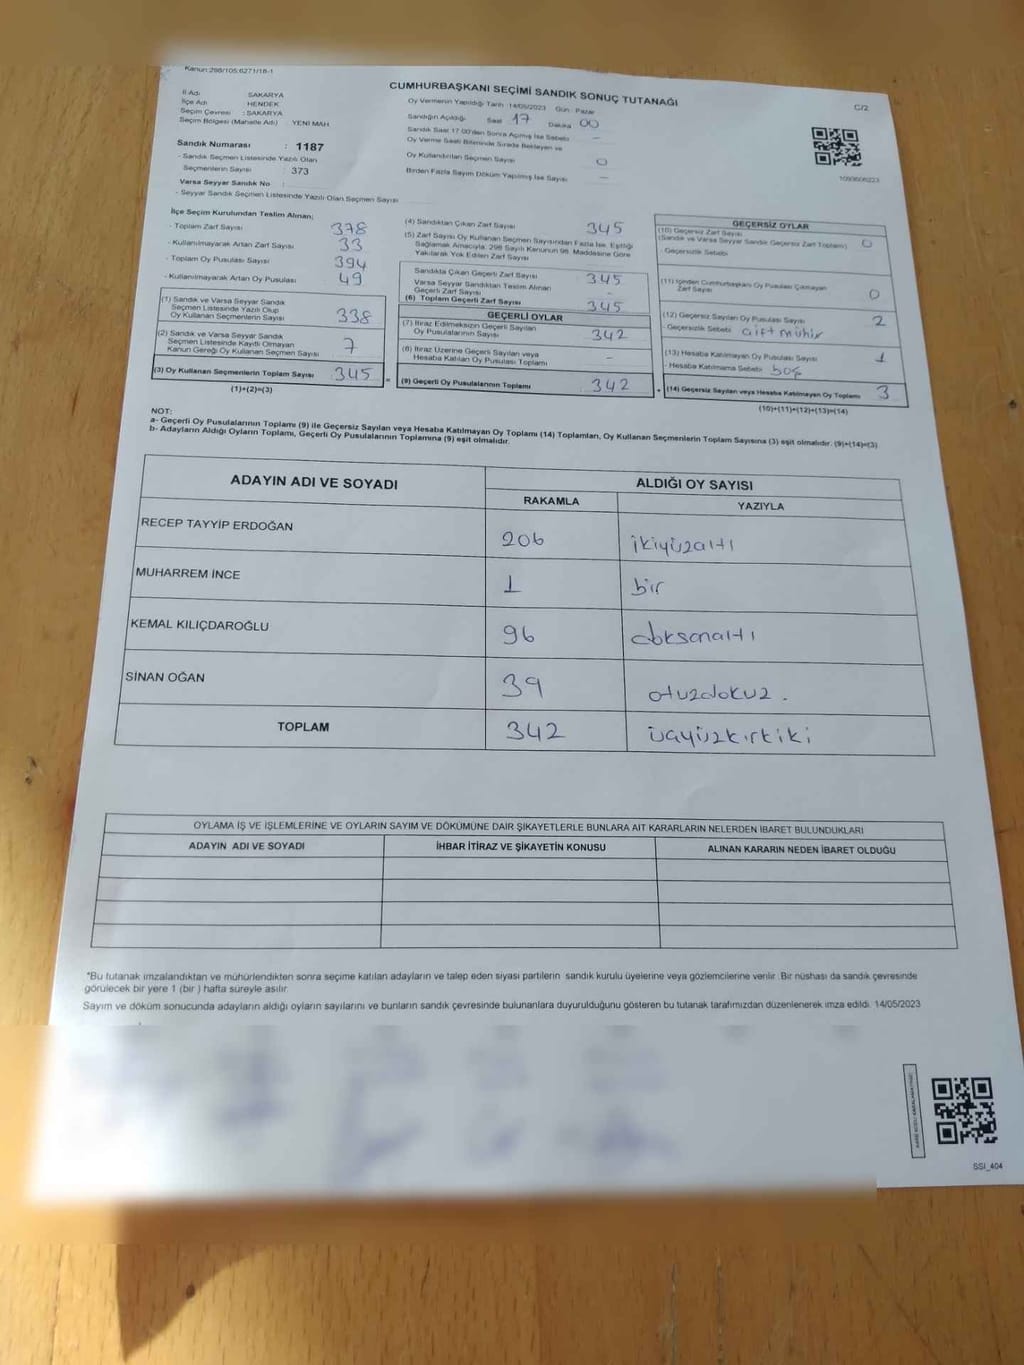 Kanun:298/105;6271/18-1
CUMHURBAŞKANI SEÇİMİ SANDIK SONUÇ TUTANAĞI
C/2
İl Adı SAKARYA
İlçe Adı HENDEK
Seçim Çevresi : SAKARYA
Seçim Bölgesi (Mahalle Adı) : YENİ MAH
Oy Vermenin Yapıldığı Tarih :14/05/2023 Gün : Pazar
Sandığın Açıldığı Saat 17 Dakika 00
Sandık Saat 17.00'den Sonra Açılmış İse Sebebi –
Oy Verme Saati Bitiminde Sırada Bekleyen ve
Oy Kullandırılan Seçmen Sayısı 0
Birden Fazla Sayım Döküm Yapılmış İse Sayısı –
Sandık Numarası : 1187
- Sandık Seçmen Listesinde Yazılı Olan
Seçmenlerin Sayısı : 373
Varsa Seyyar Sandık No :
- Seyyar Sandık Seçmen Listesinde Yazılı Olan Seçmen Sayısı
İlçe Seçim Kurulundan Teslim Alınan;
- Toplam Zarf Sayısı 378
- Kullanılmayarak Artan Zarf Sayısı 33
- Toplam Oy Pusulası Sayısı 394
- Kullanılmayarak Artan Oy Pusulası 49
(1) Sandık ve Varsa Seyyar Sandık
Seçmen Listesinde Yazılı Olup
Oy Kullanan Seçmenlerin Sayısı 338
(2) Sandık ve Varsa Seyyar Sandık
Seçmen Listesinde Kayıtlı Olmayan
Kanun Gereği Oy Kullanan Seçmen Sayısı 7
(3) Oy Kullanan Seçmenlerin Toplam Sayısı 345
(1)+(2)=(3)
(4) Sandıktan Çıkan Zarf Sayısı 345
(5) Zarf Sayısı Oy Kullanan Seçmen Sayısından Fazla İse, Eşitliği
Sağlamak Amacıyla, 298 Sayılı Kanunun 98. Maddesine Göre
Yakılarak Yok Edilen Zarf Sayısı
Sandıkta Çıkan Geçerli Zarf Sayısı 345
Varsa Seyyar Sandıktan Teslim Alınan
Geçerli Zarf Sayısı –
(6) Toplam Geçerli Zarf Sayısı 345
GEÇERLİ OYLAR
(7) İtiraz Edilmeksizin Geçerli Sayılan
Oy Pusulalarının Sayısı 342
(8) İtiraz Üzerine Geçerli Sayılan veya
Hesaba Katılan Oy Pusulası Toplamı –
= (9) Geçerli Oy Pusulalarının Toplamı 342
GEÇERSİZ OYLAR
(10) Geçersiz Zarf Sayısı
(Sandık ve Varsa Seyyar Sandık Geçersiz Zarf Toplamı) 0
- Geçersizlik Sebebi
(11) İçinden Cumhurbaşkanı Oy Pusulası Çıkmayan
Zarf Sayısı 0
(12) Geçersiz Sayılan Oy Pusulası Sayısı 2
- Geçersizlik Sebebi çift mühür
(13) Hesaba Katılmayan Oy Pusulası Sayısı 1
- Hesaba Katılmama Sebebi boş
+ (14) Geçersiz Sayılan veya Hesaba Katılmayan Oy Toplamı 3
(10)+(11)+(12)+(13)=(14)
NOT:
a- Geçerli Oy Pusulalarının Toplamı (9) ile Geçersiz Sayılan veya Hesaba Katılmayan Oy Toplamı (14) Toplamları, Oy Kullanan Seçmenlerin Toplam Sayısına (3) eşit olmalıdır. (9)+(14)=(3)
b- Adayların Aldığı Oyların Toplamı, Geçerli Oy Pusulalarının Toplamına (9) eşit olmalıdır.
ADAYIN ADI VE SOYADI ALDIĞI OY SAYISI
RAKAMLA YAZIYLA
RECEP TAYYİP ERDOĞAN 206 ikiyüzaltı
MUHARREM İNCE 1 bir
KEMAL KILIÇDAROĞLU 96 doksanaltı
SİNAN OĞAN 39 otuzdokuz.
TOPLAM 342 üçyüzkırkiki
OYLAMA İŞ VE İŞLEMLERİNE VE OYLARIN SAYIM VE DÖKÜMÜNE DAİR ŞİKAYETLERLE BUNLARA AİT KARARLARIN NELERDEN İBARET BULUNDUKLARI
ADAYIN ADI VE SOYADI İHBAR İTİRAZ VE ŞİKAYETİN KONUSU ALINAN KARARIN NEDEN İBARET OLDUĞU
"Bu tutanak imzalandıktan ve mühürlendikten sonra seçime katılan adayların ve talep eden siyasi partilerin sandık kurulu üyelerine veya gözlemcilerine verilir. Bir nüshası da sandık çevresinde
görülecek bir yere 1 (bir ) hafta süreyle asılır.
Sayım ve döküm sonucunda adayların aldığı oyların sayılarını ve bunların sandık çevresinde bulunanlara duyurulduğunu gösteren bu tutanak tarafımızdan düzenlenerek imza edildi. 14/05/2023
SSI_404